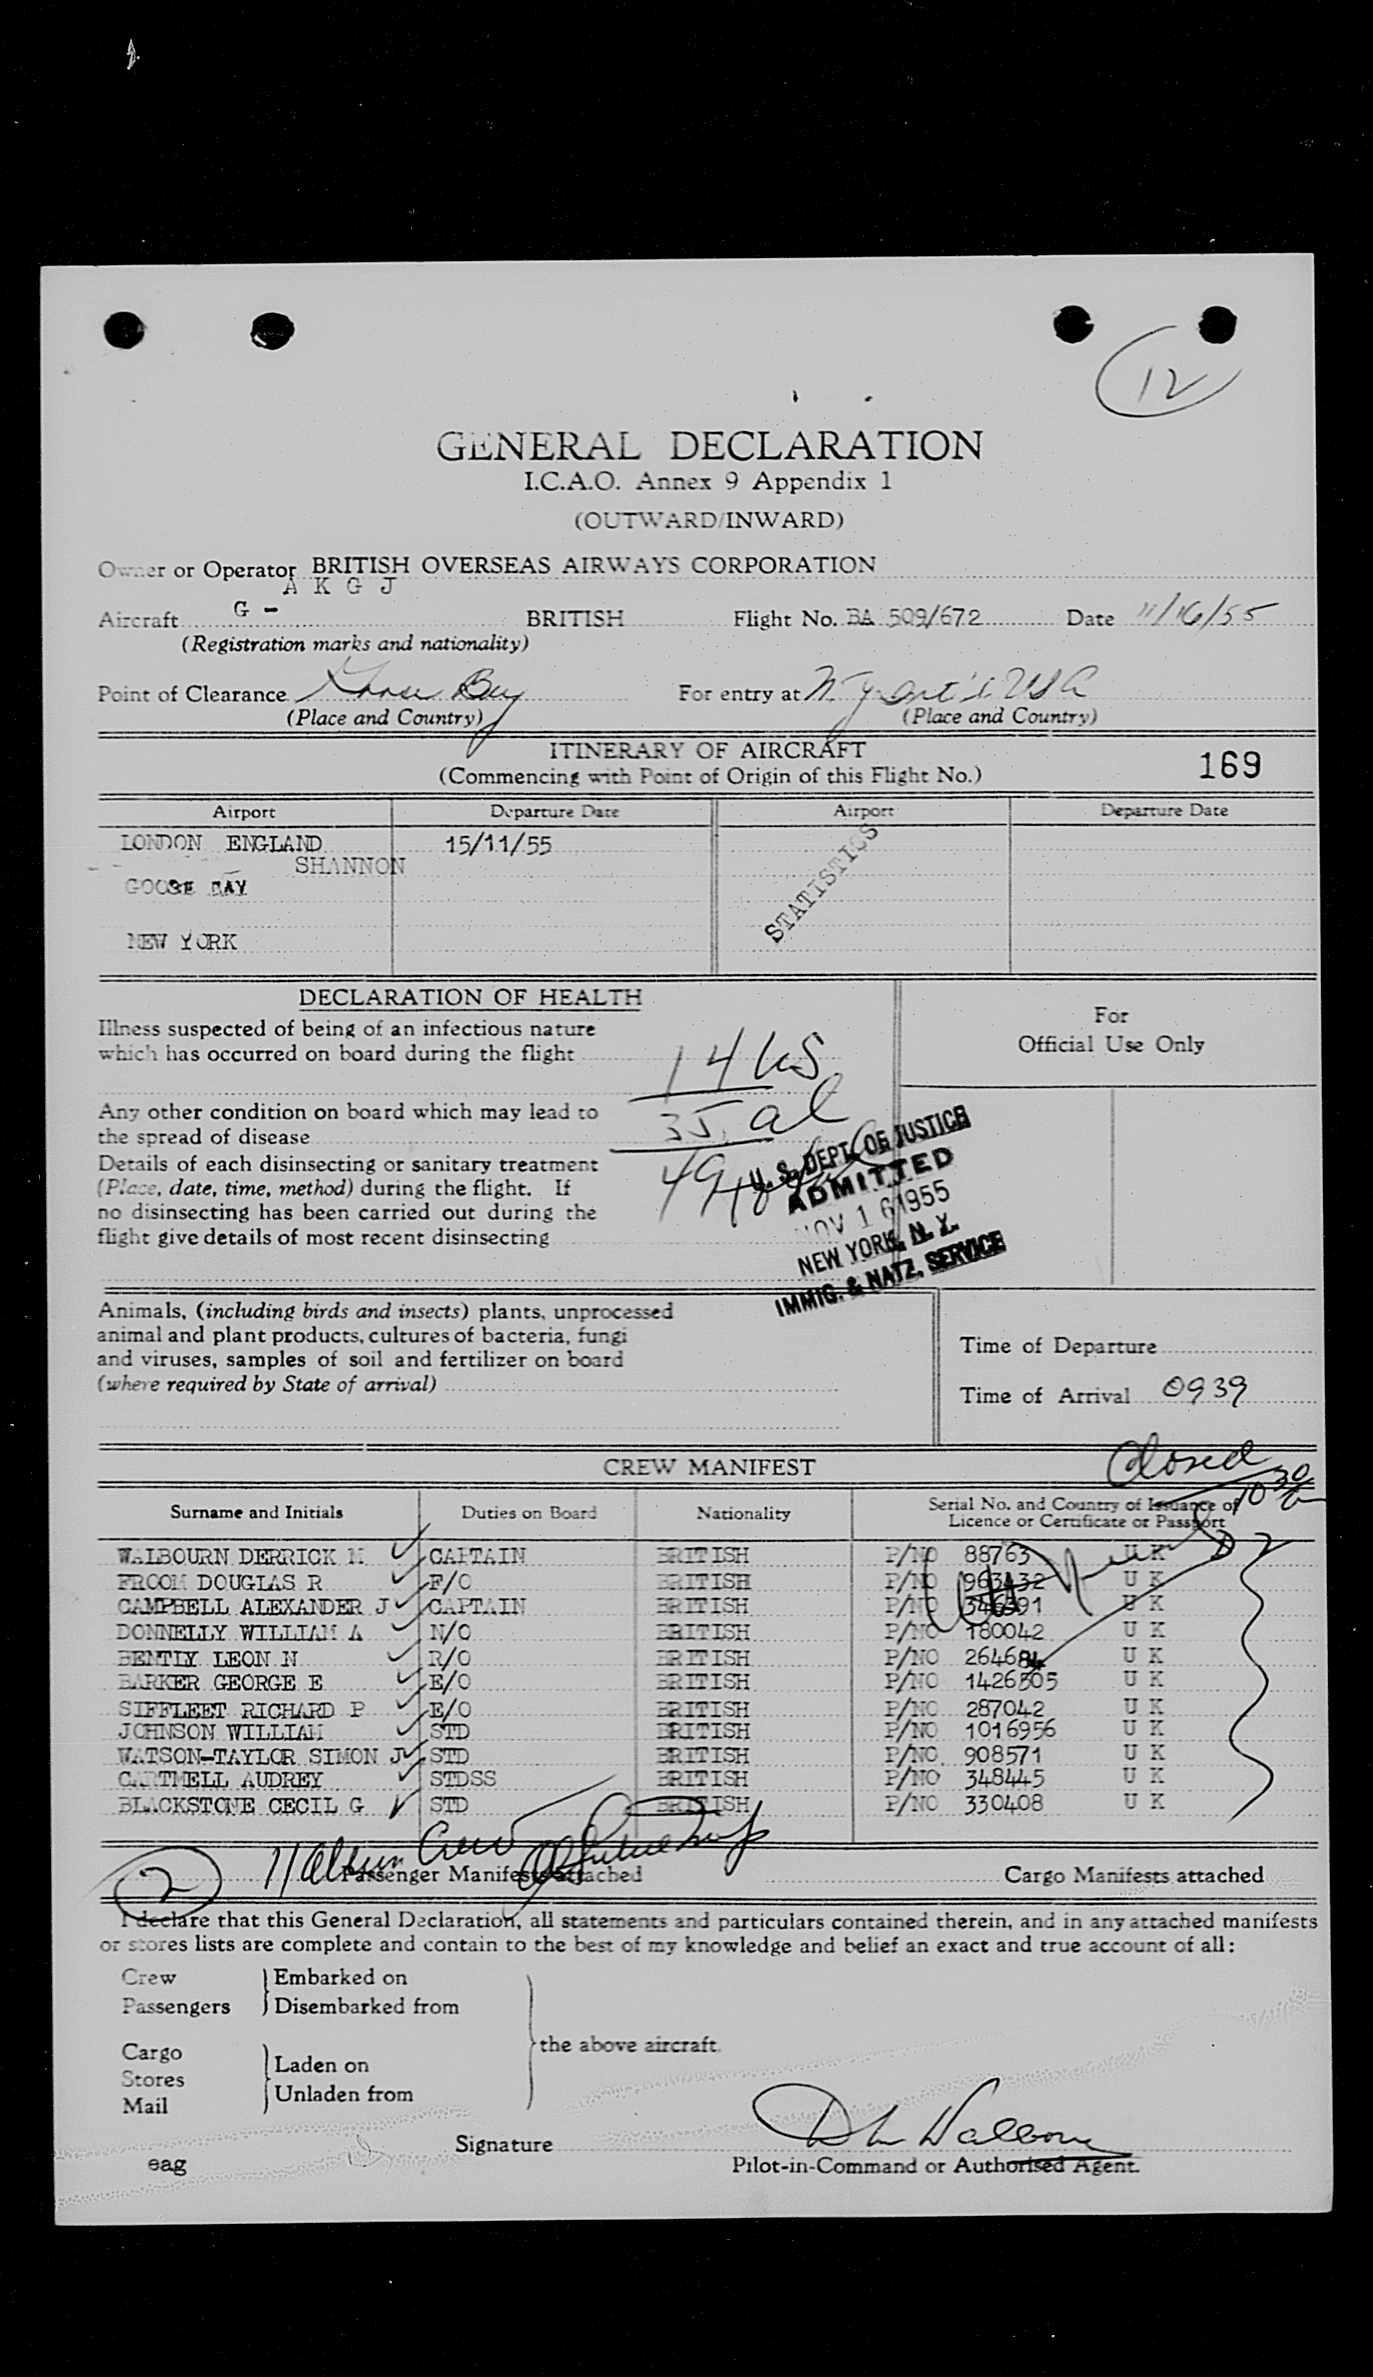 12
GENERAL DECLARATION
I.C.A.O. Annex 9 Appendix 1
(OUTWARD/INWARD)
Owner or Operator BRITISH OVERSEAS AIRWAYS CORPORATION
A K G J
Aircraft G - BRITISH Flight No. BA 509/672 Date 11/16/55
(Registration marks and nationality)
Point of Clearance Goose Bay For entry at N.Y. Int'l USA
(Place and Country) (Place and Country)
ITINERARY OF AIRCRAFT
(Commencing with Point of Origin of this Flight No.) 169
Airport Departure Date Airport Departure Date
LONDON ENGLAND 15/11/55
SHANNON
GOOSE BAY
NEW YORK
STATISTICS
DECLARATION OF HEALTH
For
Official Use Only
Illness suspected of being of an infectious nature
which has occurred on board during the flight
14 US
Any other condition on board which may lead to
the spread of disease
35 al
Details of each disinsecting or sanitary treatment
(Place, date, time, method) during the flight. If
no disinsecting has been carried out during the
flight give details of most recent disinsecting
49
U. S. DEPT. OF JUSTICE
ADMITTED
NOV 16 1955
NEW YORK, N. Y.
IMMIG. & NATZ. SERVICE
Animals, (including birds and insects) plants, unprocessed
animal and plant products, cultures of bacteria, fungi
and viruses, samples of soil and fertilizer on board
(where required by State of arrival)
Time of Departure
Time of Arrival 0939
Closed
1030
CREW MANIFEST
Surname and Initials Duties on Board Nationality Serial No. and Country of Issuance of
Licence or Certificate or Passport
WALBOURN DERRICK M CAPTAIN BRITISH P/NO 88763 U K
FROOM DOUGLAS R F/O BRITISH P/NO 963432 U K
CAMPBELL ALEXANDER J CAPTAIN BRITISH P/NO 346391 U K
DONNELLY WILLIAM A N/O BRITISH P/NO 180042 U K
BENTLY LEON N R/O BRITISH P/NO 264684 U K
BARKER GEORGE E E/O BRITISH P/NO 1426505 U K
SIFFLEET RICHARD P E/O BRITISH P/NO 287042 U K
JOHNSON WILLIAM STD BRITISH P/NO 1016956 U K
WATSON-TAYLOR SIMON J STD BRITISH P/NO. 908571 U K
CARTMELL AUDREY STDSS BRITISH P/NO 348445 U K
BLACKSTONE CECIL G STD BRITISH P/NO 330408 U K
D2
11 alien Crew
2 Passenger Manifests attached Cargo Manifests attached
I declare that this General Declaration, all statements and particulars contained therein, and in any attached manifests
or stores lists are complete and contain to the best of my knowledge and belief an exact and true account of all:
Crew Embarked on
Passengers Disembarked from
the above aircraft.
Cargo
Stores Laden on
Mail Unladen from
Signature
eag Pilot-in-Command or Authorised Agent.